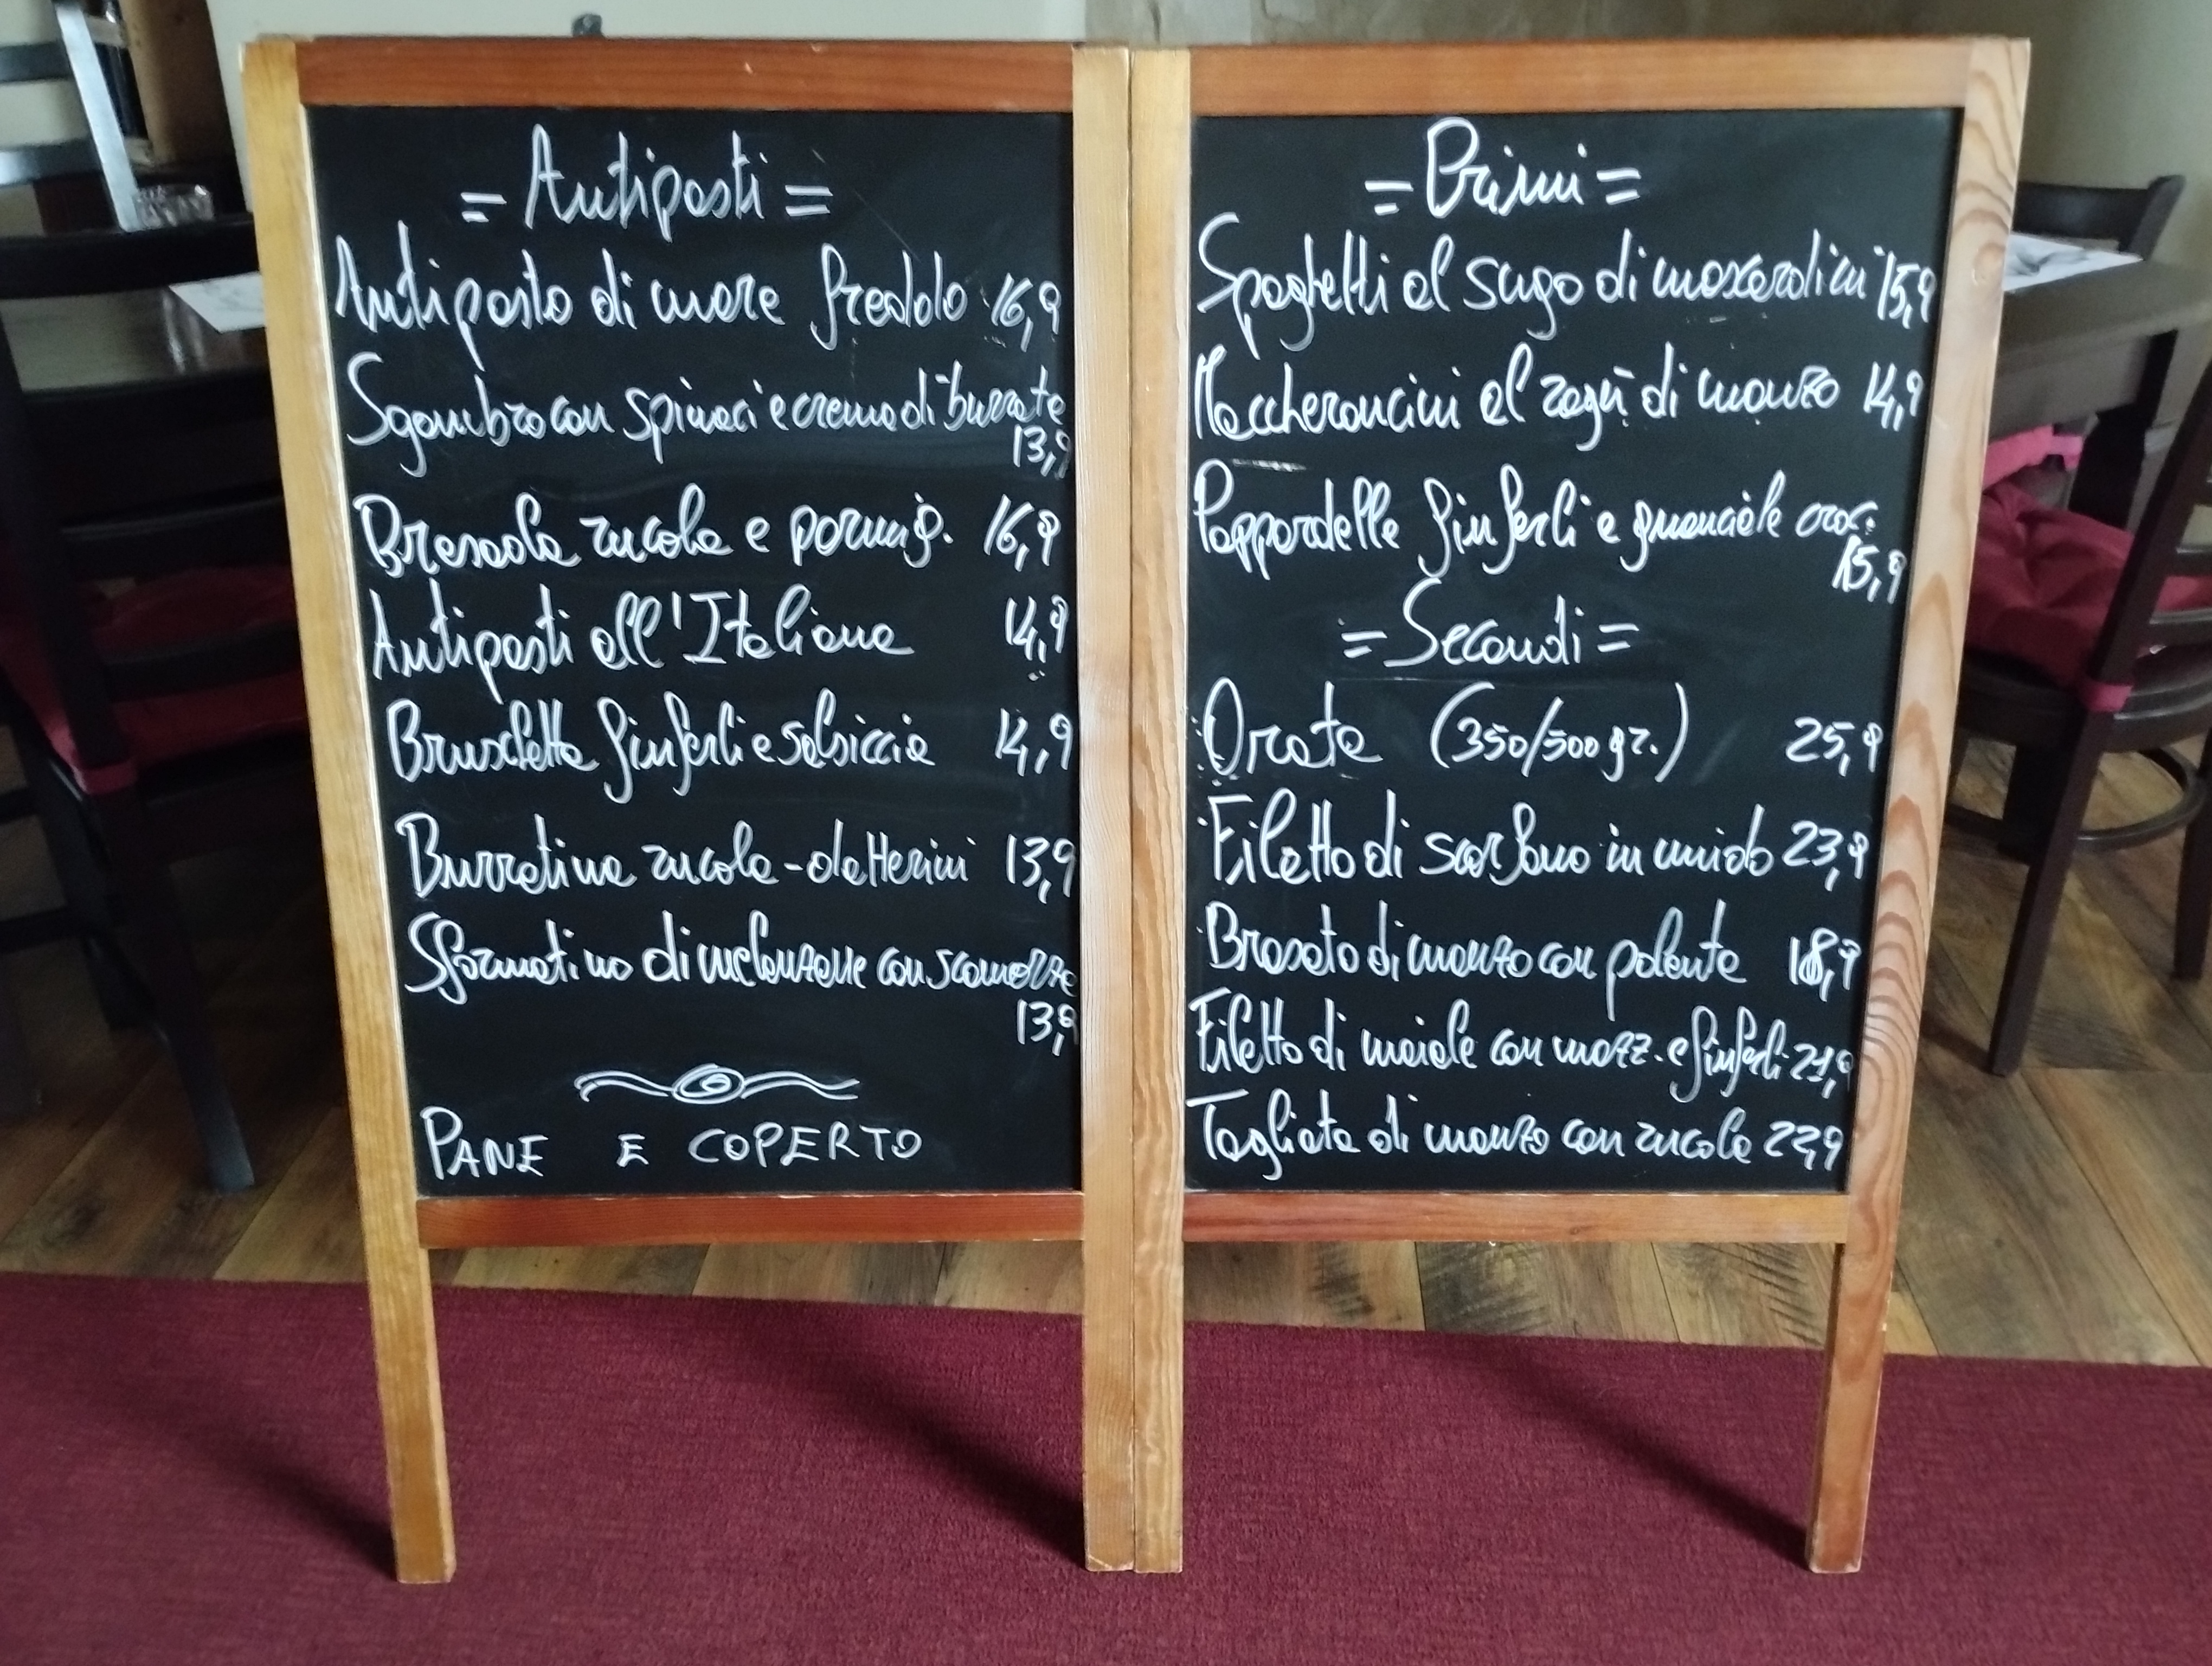 = Antipasti =
Antipasto di mare freddo 16,9
Sgombro con spinaci e crema di burrata
13,9
Bresaola rucola e parmig. 16,9
Antipasti all'Italiana 14,9
Bruschetta finferli e salsiccia 14,9
Burratina rucola-datterini 13,9
Sformatino di melanzane con scamorza
13,9
PANE E COPERTO
= Primi =
Spaghetti al sugo di moscardini 15,9
Maccheroncini al ragù di manzo 14,9
Pappardelle finferli e guanciale croc.
15,9
= Secondi =
Orata (350/500 gr.) 25,9
Filetto di scorfano in umido 23,9
Brasato di manzo con polenta 18,9
Filetto di maiale con mozz. e finferli 21,9
Tagliata di manzo con rucola 22,9